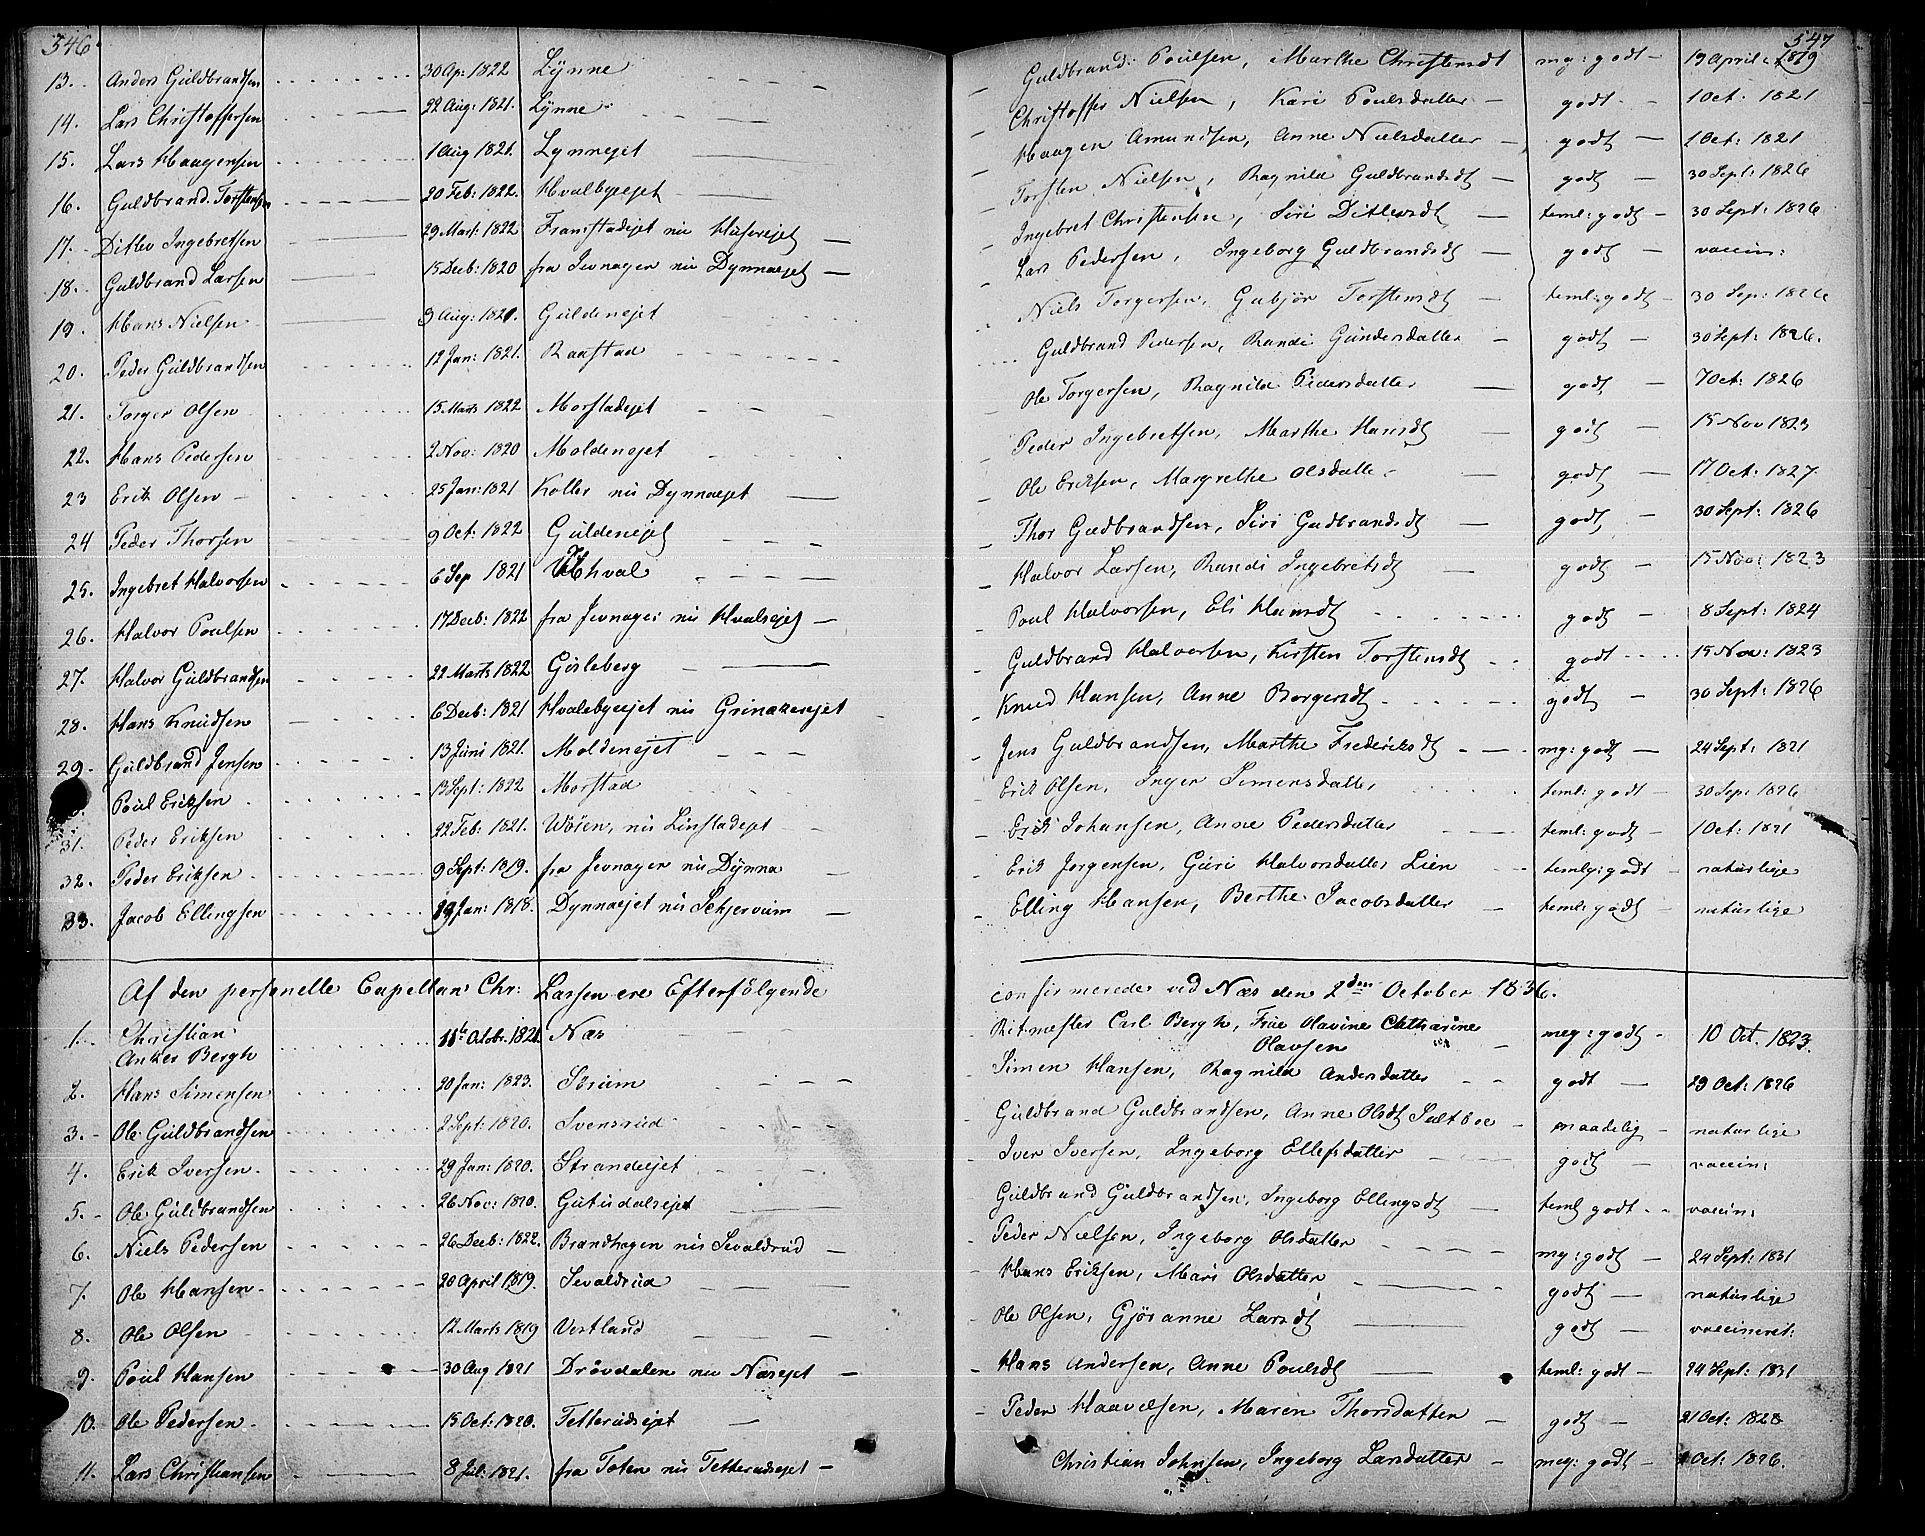 546. 547
13. Anders Guldbrandsen 30 Ap: 1822 Lynne Guldbrand Poulsen, Marthe Christensdt mg: godt 19 April 1829
14. Lars Christoffersen 22 Aug: 1821. Lynne Christoffer Nielsen, Kari Poulsdatter godt 1 Oct: 1821
15. Lars Haagensen 1 Aug 1821. Lynneejet Haagen Amundsen, Anne Nielsdatter godt 1 Oct: 1821
16. Guldbrand Torstensen 20 Feb: 1822. Hvalbyeejet Torsten Nielsen, Ragnild Guldbrandsdt godt 30 Sept: 1826
17. Ditlev Ingebretsen 29 Mart: 1822. Framstadejet nu Huserejet Ingebret Christensen, Siri Ditlevsdt teml: godt 30 Sept: 1826
18. Guldbrand Larsen 15 Decb: 1820 fra Jevnager nu Dynnaejet Lars Pedersen, Ingeborg Guldbrandsdt godt vaccin:
19. Hans Nielsen 9 Aug: 1821. Guldenejet Niels Torgersen, Gubjør Torstensdt teml: godt 30 Sep: 1826
20. Peder Guldbrandsen 12 Jan: 1821. Raastad Guldbrand Pedersen, Randi Gundersdatter godt 30 Sept: 1826.
21. Torger Olsen 15 Marts 1822 Morstadejet Ole Torgersen, Ragnild Pedersdatter godt 7 Oct: 1826
22. Hans Pedersen 2 Nov: 1820 Moldenejet Peder Ingebretsen, Marthe Hansdt godt 15 Nov 1823
23 Erik Olsen 25 Jan: 1821 Koller nu Dynnaejet Ole Eriksen, Margrethe Olsdatter godt 17 Oct: 1827.
24 Peder Thorsen 9 Oct: 1822 Guldenejet Thor Gudbrandsen, Siri Gudbrandsdt godt 30 Sept: 1826
25. Ingebret Halvorsen 6 Sep 1821 hval Halvor Larsen, Randi Ingebretsdt godt 15 Nov: 1823
26. Halvor Poulsen 17 Decb: 1822 fra Jevnager nu Hvalsejet Poul Halvorsen, Eli Hansdt godt 8 Sept: 1824
27. Halvor Guldbrandsen 22 Marts 1822 Gisleberg Guldbrand Halvorsen, Kirsten Torstensdt godt 15 Nov: 1823
28. Hans Knudsen 6 Decb: 1821 Hvalebyeejet nu Grinakerejet Knud Hansen, Anne Borgersdt godt 30 Sept: 1826
29. Guldbrand Jensen 13 Juni 1821. Moldenejet Jens Guldbrandsen, Marthe Frederiksdt mg: godt 24 Sept: 1821
Poul Eriksen 13 Sept: 1822 Morstad Erik Olsen, Inger Simensdatter teml: godt 30 Sep: 1826
31. Peder Eriksen 22 Feb: 1821. Wøien, nu Linstadejet Erik Johansen, Anne Pedersdatter teml: godt 1 Oct: 1821
32. Peder Eriksen 9 Sept: 1819. fra Jevnager nu Dynna Erik Jørgensen, Guri Halvorsdatter Lien temlg: godt naturlige
33. Jacob Ellingsen 19 Jan: 1818. Dynnaejet nu Schjervum Elling Hansen, Berthe Jacobsdatter teml: godt naturlige
Af den personelle Capellan Chr: Lassen ere Efterfölgende confirmerede ved Næs den 2den October 1836.
1. Christian Anker Bergh 11te Octobr. 1821. Næs Ritmester Carl Bergh, Frue Olavine Chatharine Olavsen meg: godt 10 Oct. 1823.
2. Hans Simensen 20 Jan: 1823. Sørum Simen Hansen, Ragnild Andersdatter godt 29 Oct: 1826
3. Ole Guldbrandsen 2 Sept: 1820. Svensrud Guldbrand Guldbrandsen, Anne Olsdt Sætboe maadelig naturlige
4. Erik Iversen 29 Jan: 1820. Strandeejet Iver Iversen, Ingeborg Ellefsdatter godt vaccin:
5. Ole Guldbrandsen 26 Nov: 1820. Gutudalsejet Guldbrand Guldbrandsen, Ingeborg Ellingsdt teml godt vaccin:
6. Niels Pedersen 26 Decb: 1822. Brandhagen nu Sevaldrud Peder Nielsen, Ingeborg Olsdatter mg: godt 24 Sept: 1831
7. Ole Hansen 20 April 1819. Sevaldrud Hans Eriksen, Mari Olsdatter godt naturlige
8. Ole Olsen 12 Marts 1819 Vestland Ole Olsen, Gjøranne Larsdt godt vaccineret:
9. Poul Hansen 30 Aug 1821 Drövdalen nu Næsejet Hans Andersen, Anne Poulsdt teml: godt 24 Sept: 1831
10. Ole Pedersen 15 Oct: 1820. Tetterudsejet Peder Haavelsen, Maren Thorsdatter godt 21 Oct: 1828
11. Lars Christiansen 8 Jul: 1821. fra Toten nu Tetterudsejet Christian Johnsen, Ingeborg Larsdatter meg: godt Oct: 1826.